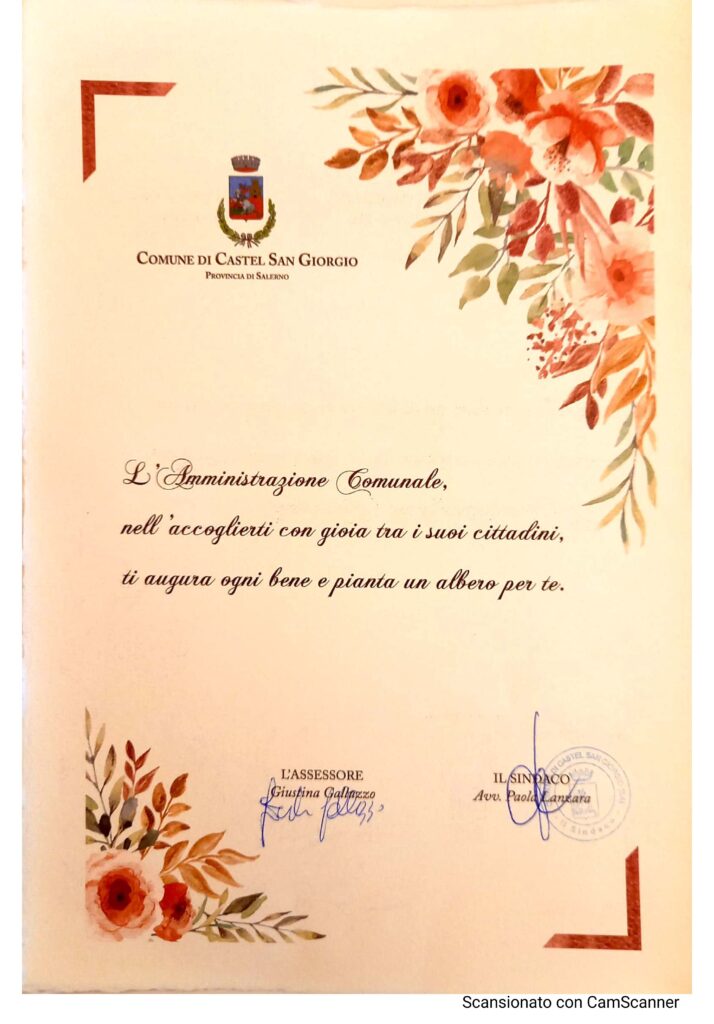 COMUNE DI CASTEL SAN GIORGIO
PROVINCIA DI SALERNO
L'Amministrazione Comunale,
nell'accoglierti con gioia tra i suoi cittadini,
ti augura ogni bene e pianta un albero per te.
L'ASSESSORE
Giustina Galluzzo
IL SINDACO
Avv. Paola Lanzara
DI CASTEL SAN GIORGIO
Il Sindaco
Scansionato con CamScanner